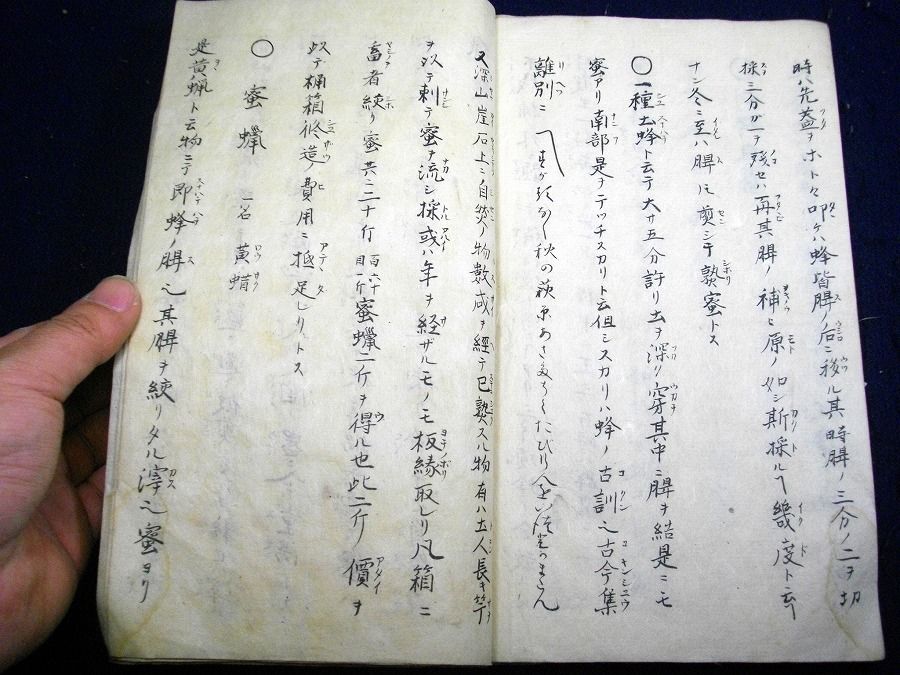 時ハ先蓋ヲホト々々叩ケハ蜂皆脾ノ后ニ移ル其時脾ノ三分ノ二ヲ切
採三分が一ヲ残セハ再其脾ノ補ヒ原ノ如シ斯採ルヿ幾度ト云ヿ
ナシ冬ニ至ハ脾ﾄﾓ煎シテ熟蜜トス
〇一種土蜂ト云テ大サ五分許リ土ヲ深ク穿其中ニ脾ヲ結是ニモ
蜜アリ南部是ヲテッチスカリト云但シスカリハ蜂ノ古訓也古今集
離別ニ 秋の萩原あさたちてたびゆく人をいつとかまたん
又深山崖石上ニ自然ノ物数歳ヲ經テ已熟スル物有ハ土人長キ竿
ヲ以テ刺テ蜜ヲ流シ採或ハ年ヲ経ザルモノモ板縁取レリ凡箱ニ
畜者絞リ蜜共ニ二十斤百六十目一斤蜜蠟二斤ヲ得ル也此二斤ノ價ヲ
以テ桶箱修造ノ費用ニ抵足レリトス
〇 蜜蠟 一名 黄蜡
是黄蝋ト云物ニテ即蜂ノ脾也其脾ヲ絞リタル滓也蜜ヨリ